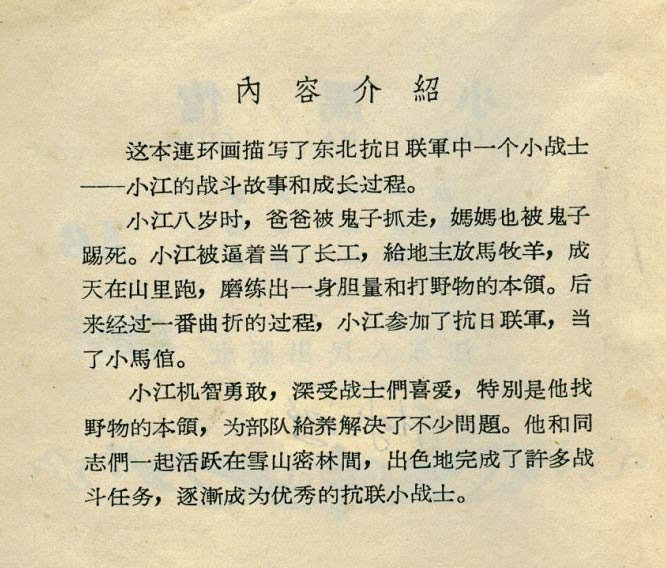 內容介紹
这本連环画描写了东北抗日联軍中一个小战士
——小江的战斗故事和成长过程。
小江八岁时，爸爸被鬼子抓走，媽媽也被鬼子
踢死。小江被逼着当了长工，給地主放馬牧羊，成
天在山里跑，磨练出一身胆量和打野物的本領。后
来经过一番曲折的过程，小江参加了抗日联軍，当
了小馬倌。
小江机智勇敢，深受战士們喜爱，特別是他找
野物的本領，为部队給养解决了不少問題。他和同
志們一起活跃在雪山密林間，出色地完成了許多战
斗任务，逐漸成为优秀的抗联小战士。